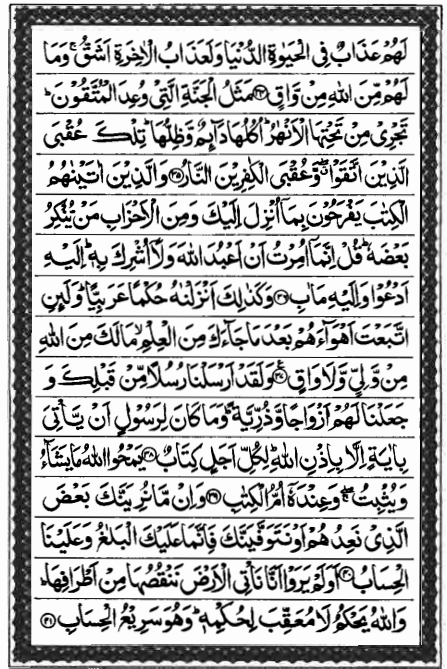 لَهُمْ عَذَابٌ فِي الْحَيٰوةِ الدُّنْيَا وَلَعَذَابُ الْاٰخِرَةِ اَشَقُّ ۚ وَمَا
لَهُمْ مِّنَ اللّٰهِ مِنْ وَّاقٍ ﴿۳۴﴾ مَثَلُ الْجَنَّةِ الَّتِيْ وُعِدَ الْمُتَّقُوْنَ ؕ
تَجْرِيْ مِنْ تَحْتِهَا الْاَنْهٰرُ ؕ اُكُلُهَا دَآىِٕمٌ وَّظِلُّهَا ؕ تِلْكَ عُقْبَى
الَّذِيْنَ اتَّقَوْا ۖۗ وَّعُقْبَى الْكٰفِرِيْنَ النَّارُ ﴿۳۵﴾ وَالَّذِيْنَ اٰتَيْنٰهُمُ
الْكِتٰبَ يَفْرَحُوْنَ بِمَاۤ اُنْزِلَ اِلَيْكَ وَمِنَ الْاَحْزَابِ مَنْ يُّنْكِرُ
بَعْضَهٗ ؕ قُلْ اِنَّمَاۤ اُمِرْتُ اَنْ اَعْبُدَ اللّٰهَ وَلَاۤ اُشْرِكَ بِهٖ ؕ اِلَيْهِ
اَدْعُوْا وَاِلَيْهِ مَاٰبِ ﴿۳۶﴾ وَكَذٰلِكَ اَنْزَلْنٰهُ حُكْمًا عَرَبِيًّا ؕ وَلَىِٕنِ
اتَّبَعْتَ اَهْوَآءَهُمْ بَعْدَ مَا جَآءَكَ مِنَ الْعِلْمِ ۙ مَا لَكَ مِنَ اللّٰهِ
مِنْ وَّلِيٍّ وَّلَا وَاقٍ ﴿۳۷﴾ وَلَقَدْ اَرْسَلْنَا رُسُلًا مِّنْ قَبْلِكَ وَ
جَعَلْنَا لَهُمْ اَزْوَاجًا وَّذُرِّيَّةً ؕ وَمَا كَانَ لِرَسُوْلٍ اَنْ يَّاْتِيَ
بِاٰيَةٍ اِلَّا بِاِذْنِ اللّٰهِ ؕ لِكُلِّ اَجَلٍ كِتَابٌ ﴿۳۸﴾ يَمْحُوا اللّٰهُ مَا يَشَآءُ
وَيُثْبِتُ ۖۚ وَعِنْدَهٗۤ اُمُّ الْكِتٰبِ ﴿۳۹﴾ وَاِنْ مَّا نُرِيَنَّكَ بَعْضَ
الَّذِيْ نَعِدُهُمْ اَوْ نَتَوَفَّيَنَّكَ فَاِنَّمَا عَلَيْكَ الْبَلٰغُ وَعَلَيْنَا
الْحِسَابُ ﴿۴۰﴾ اَوَلَمْ يَرَوْا اَنَّا نَاْتِي الْاَرْضَ نَنْقُصُهَا مِنْ اَطْرَافِهَا ؕ
وَاللّٰهُ يَحْكُمُ لَا مُعَقِّبَ لِحُكْمِهٖ ؕ وَهُوَ سَرِيْعُ الْحِسَابِ ﴿۴۱﴾